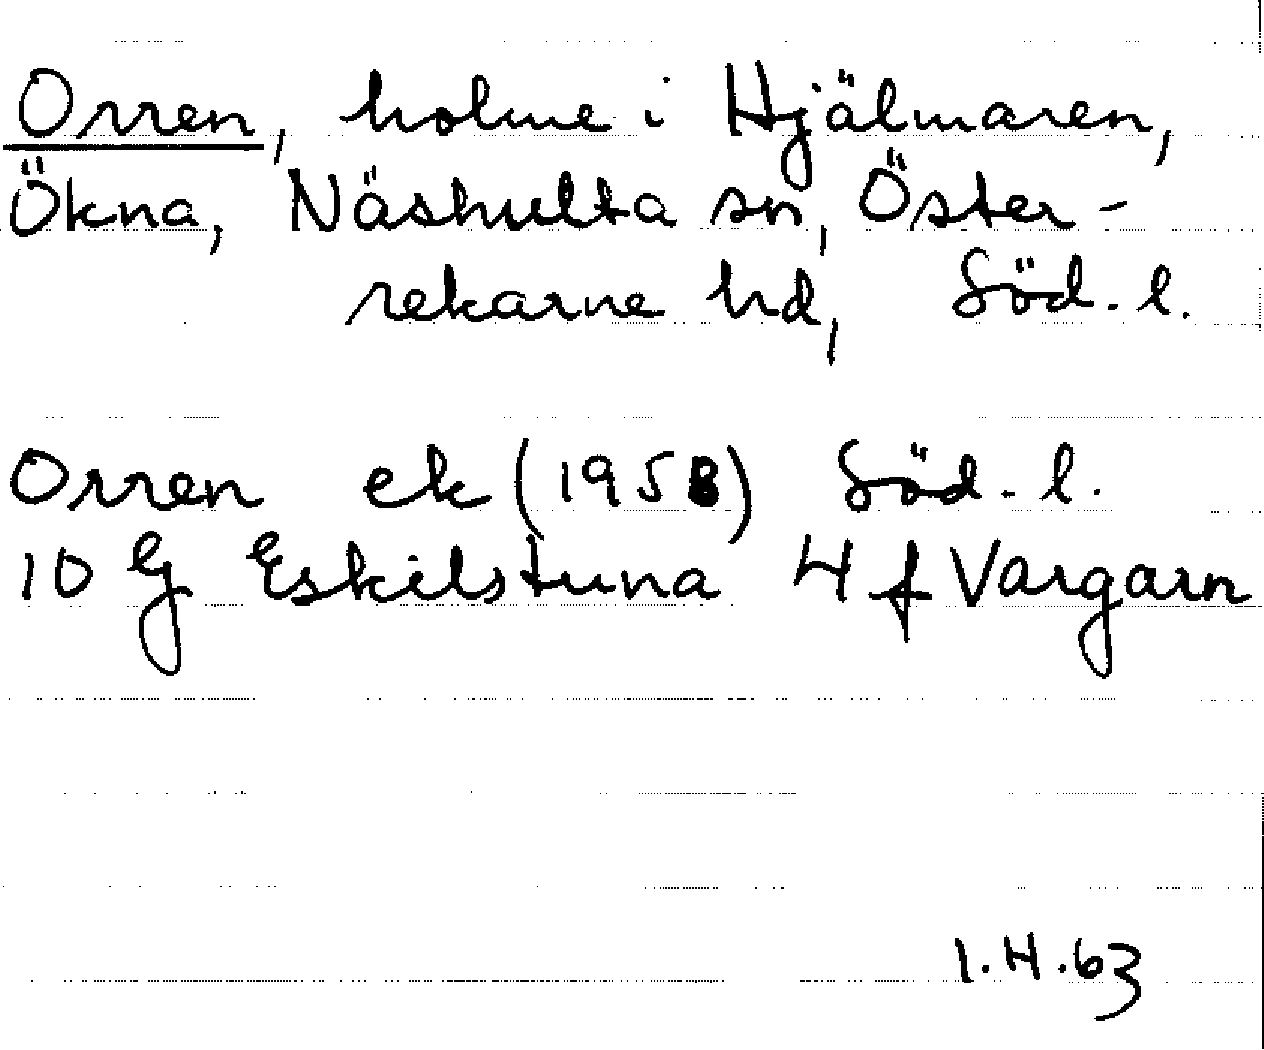 Orren, holme i Hjälmaren,
Ökna, Näshulta sn, Öster-
rekarne hd, Söd. l.
Orren ek (1958) Söd. l.
10 G Eskilstuna 4 f Vargarn
I.H.63